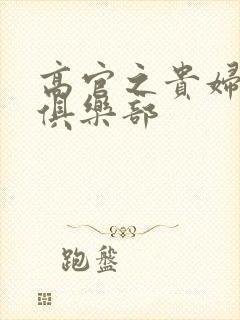 高官之貴婦
俱樂部
跑盤